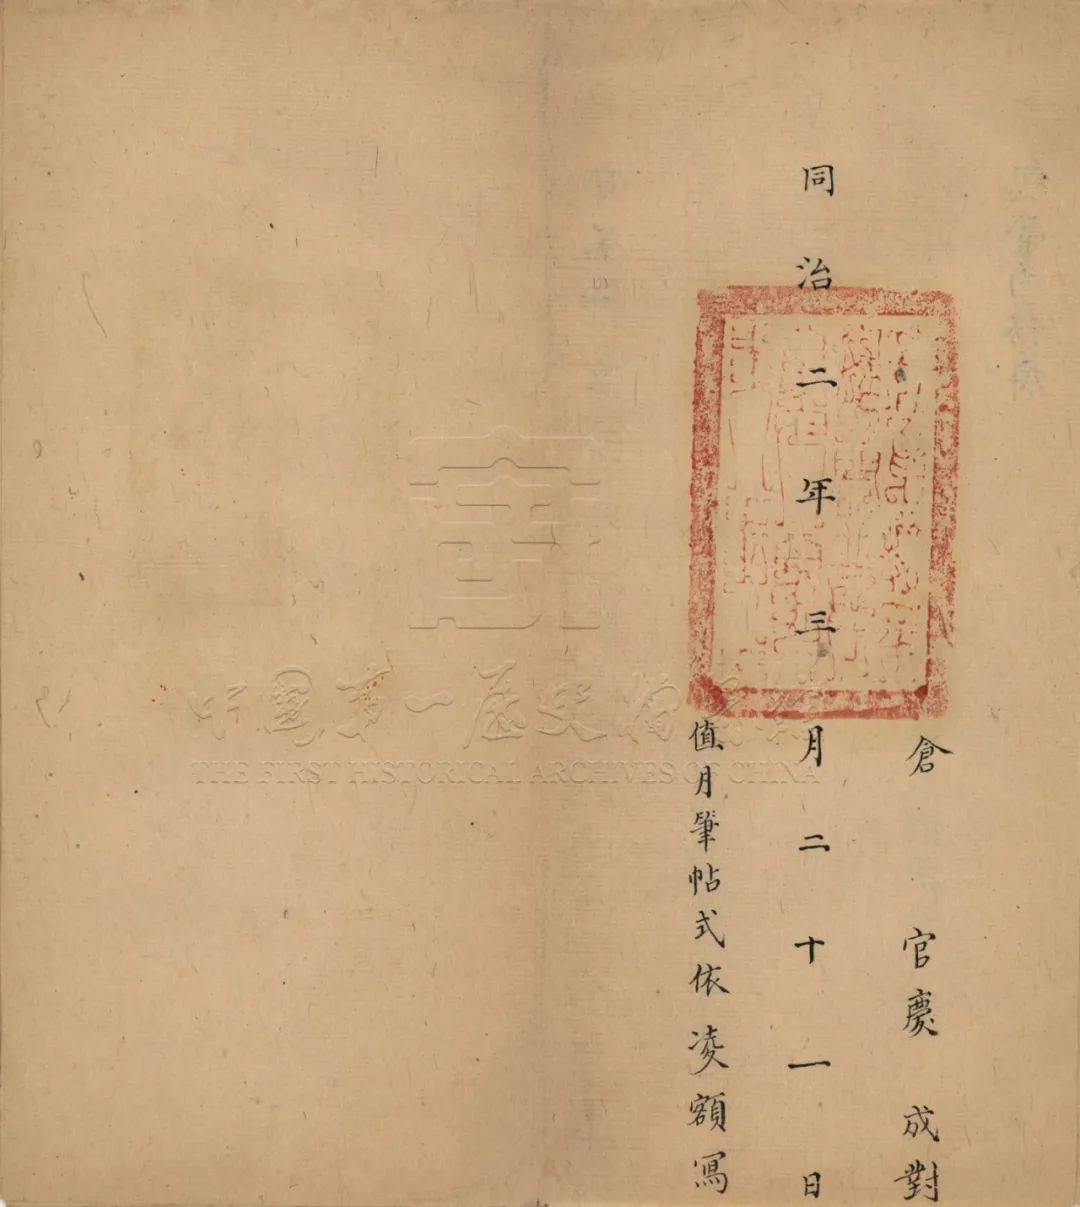 倉 官慶 成對
同治二年三月二十一日
值月筆帖式依凌額寫
中國第一歷史檔案館
THE FIRST HISTORICAL ARCHIVES OF CHINA